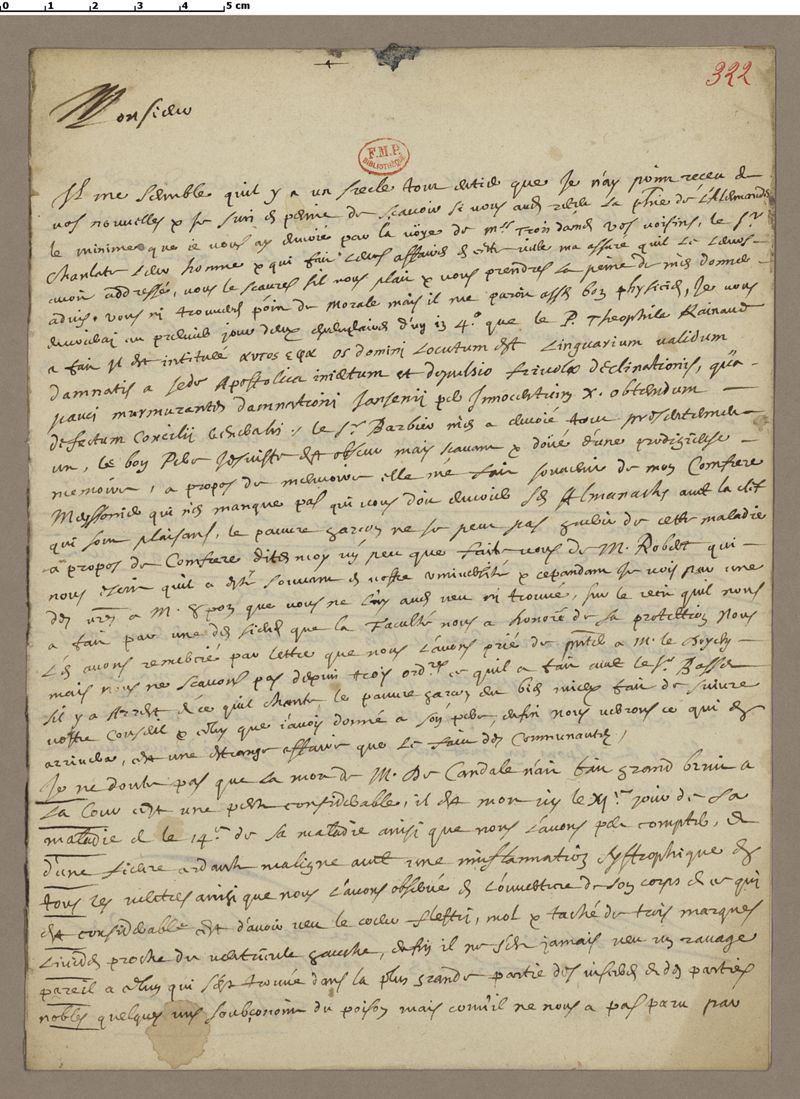 0 1 2 3 4 5 cm
322
Monsieur
F.M.P.
BIBLIOTHÈQUE
Il me semble quil y a un siecle tout entier que Je n'ay point receu de
vos nouvelles & Je suis en peine de scavoir si vous avés receu la de l'Alemandet
le minime que ie vous ay envoié par la voye de mrs Troisdames vos voisins, le Sr
Chanlate leur homme & qui fait leurs affaires en cette ville ma assuré quil le leurs
avoit addressé, vous le scaurés sil vous plait & vous prendrés la peine de men donner
advis. vous ni trouverés point de morale mais il me paroit assés bon physicien, Je vous
envoieray au premier jour deux exemplaires d'un in 4.º que le P. Theophile Rainaud
a fait Il est intitulé αυτος εφα os domini locutum est Linguarium validum
damnatis a sede Apostolica iniectum et depulsio frivolæ declinationis, quâ
pauci murmurantes damnationi Jansenij per Innocentium X. obtendunt
defectum Concilij Generalis. le Sr Barbier m'en a envoié tout presentement
un, le bon Pere Jesuiste est obscur mais scavant & doüé d'une prodigieuse
memoire, a propos de memoire elle me fait souvenir de mon Confrere
Meyssonier qui n'en manque pas qui vous doit envoier ses Almanachs avec la clef
qui sont plaisans, le pauvre garcon ne se peut pas guerir de cette maladie
a propos de Confrere dites moy un peu que faites vous de M. Robert qui
nous escrit quil a esté souvent en vostre université & cependant Je vois par une
des vres a M. Spon que vous ne l'y avés veu ni trouvé, sur le recit quil nous
a fait par une des siennes que la Faculté nous a honoré de sa protection Nous
l'en avons remercié par lettre que nous l'avons prié de a M. le Doyen
mais nous ne scavons pas depuis trois ordres ce quil a fait avec le Sr Basset
sil y a Arrest en ce quil chante le pauvre garcon eut bien mieux fait de suivre
vostre Conseil & celuy que i'avois donné a son pere, enfin nous verrons ce qui en
arrivera, c'est une estrange affaire que le fait des Communautés,
Je ne doute pas que la mort de M. De Candale n'ait fait grand bruit a
la Cour c'est une perte considerable, il est mort icy le XIe. jour de sa
maladie et le 14.e de sa maladie ainsi que nous l'avons peu compter, et
d'une fievre ardante maligne avec une inflammation systrophique en
tous les visceres ainsi que nous l'avons observé en l'ouverture de son corps et ce qui
est considerable c'est d'avoir veu le coeur flestri, mol & taché de trois marques
livides proche du ventricule gauche, enfin il ne s'est jamais veu un ravage
pareil a celuy qui s'est trouvé dans la plus grande partie des visceres et des parties
nobles quelques uns soubçonnent du poison mais comm'il ne nous a pas paru par